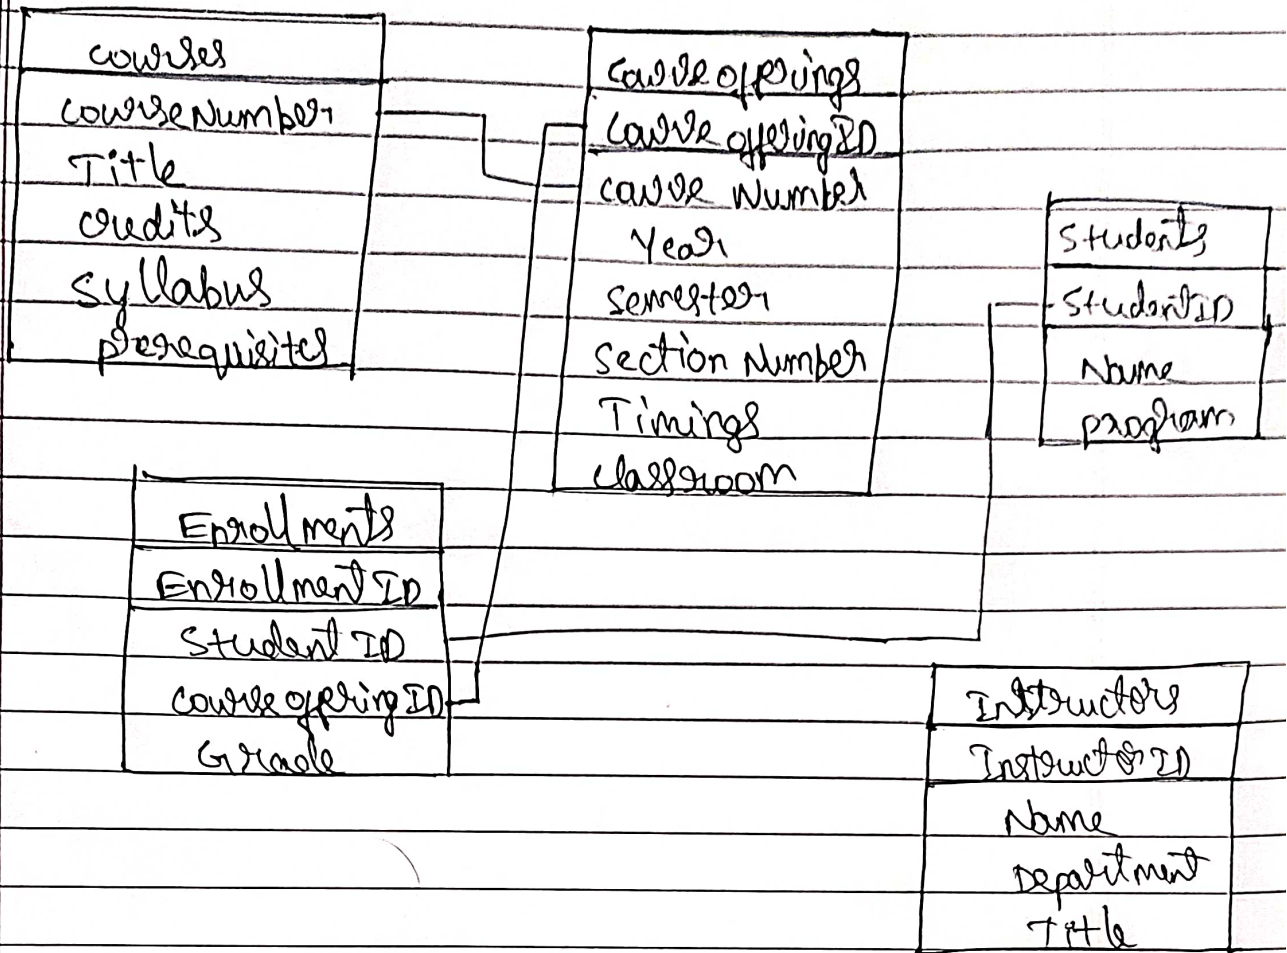 Courses
CourseNumber
Title
credits
Syllabus
prerequisites
Course offerings
Course offering ID
Course Number
Year
Semester
Section Number
Timings
Classroom
Students
StudentID
Name
program
Enrollments
Enrollment ID
Student ID
Course offering ID
Grade
Instructors
InstructorID
Name
Department
Title